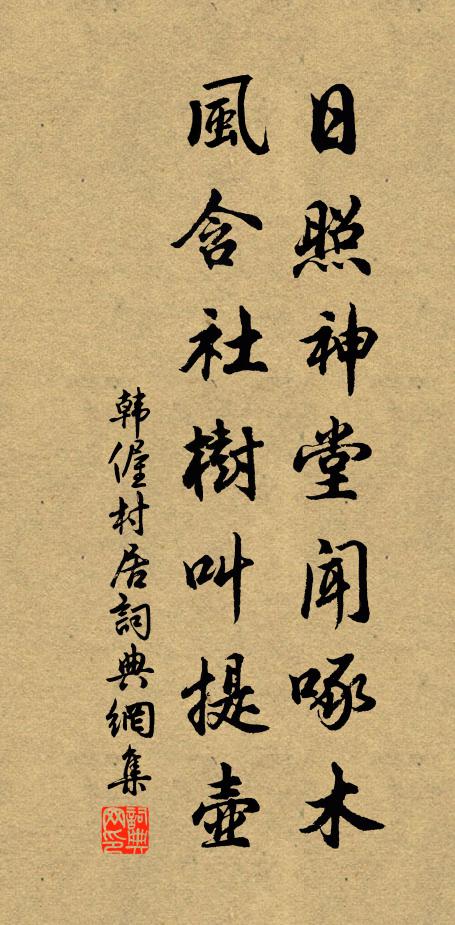 日照神堂聞啄木
風含社樹叫提壺
韩偓村居詞典網集
詞典网印